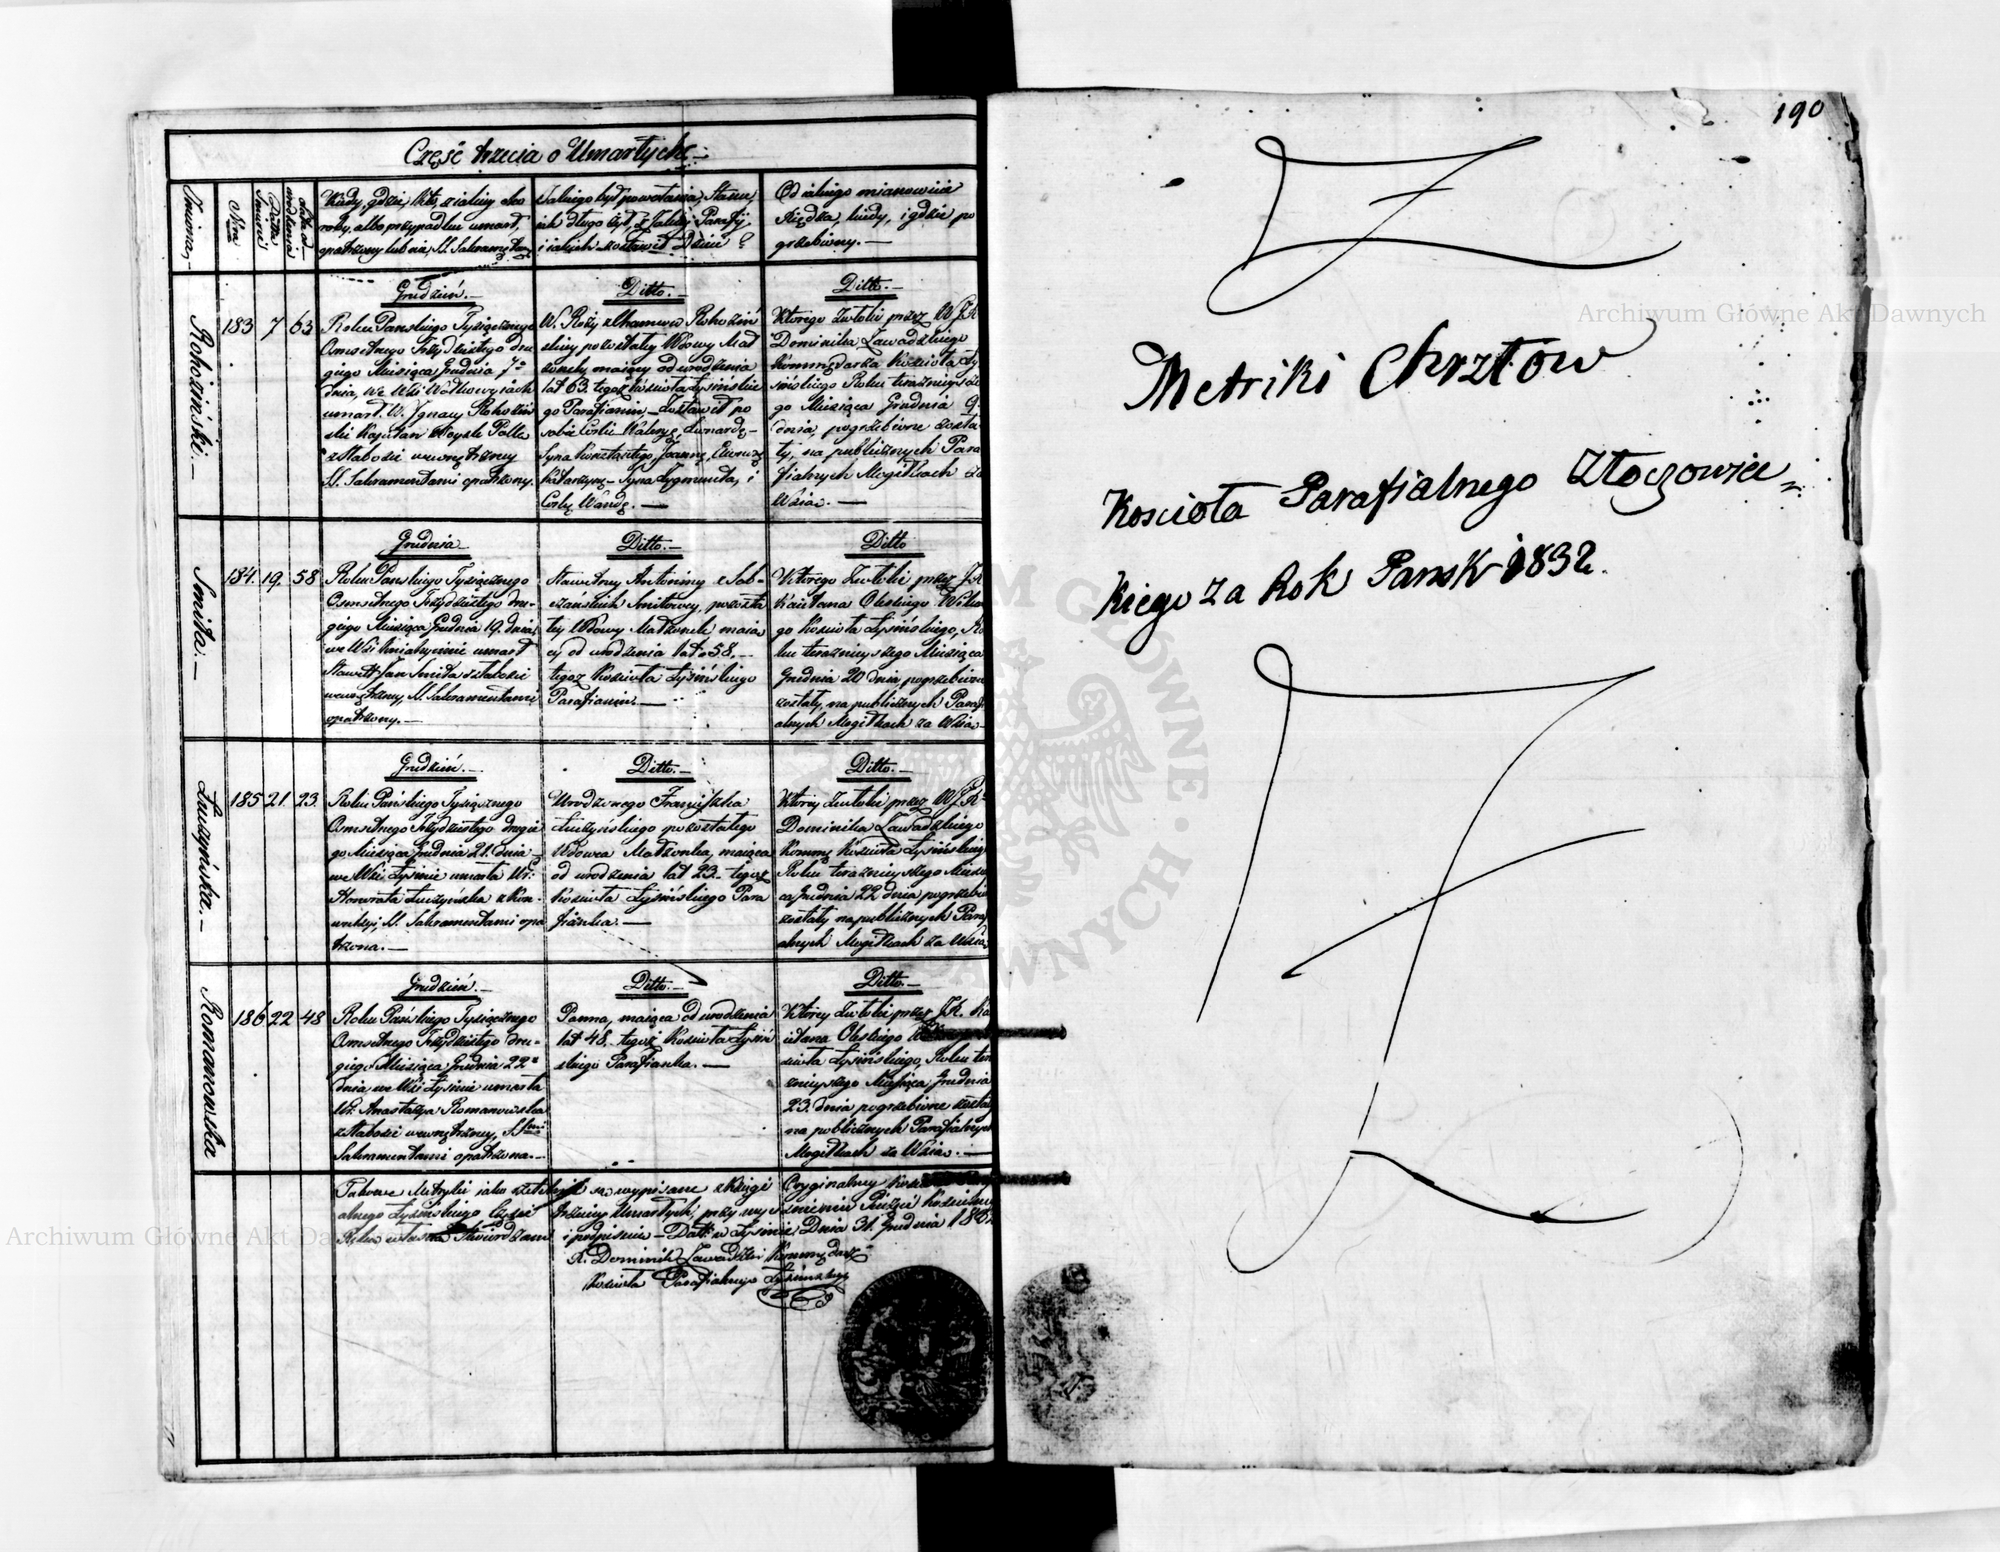 Część trzecia o Umarłych.
Imiona
Nra
Data Śmierci
Kiedy, gdzie, kto, z jakiey cho
roby, albo przypadku umarł,
opatrzony lub nie, SS. Sakramentami
Jakiego był powołania, Stanu,
jak długo żył, z Jakiey Parafij,
i jakich zostawił Dzieci?
Od jakiego mianowicie
Xiędza, kiedy, i gdzie po
grzebiony.
Rohoziński.
183
7
63
Grudzień.
Roku Pańskiego Tysiącznego
Osmsetnego Trzydziestego dru
giego Miesiąca Grudnia 7º
dnia, we Wsi
umarł W. Ignacy Rohoziń
ski Kapitan Woysk Polł.
z słabości wewnętrzney
SS. Sakramentami opatrzony.
Ditto.
W. Róży z Rohoziń
skiey pozostałey Wdowy Mał
żonek, maiący od urodzenia
lat 63. tegoż Kościoła Łysińskie
go Parafianin, Zostawił po
sobie Córki Waleryę, Leonardę,
Syna Konstantego, Joannę,
Katarzynę, Syna Zygmunta, i
Córkę Wandę.
Ditto.
Którego Zwłoki przez WJX
Dominika Zawadzkiego
Kommendarza Kościoła Ły
sińskiego Roku teraźnieysze
go Miesiąca Grudnia 9.
dnia, pogrzebione zosta
ły, na publicznych Para
fialnych Mogiłkach za
Wsią.
Smita.
184.
19.
58
Grudnia
Roku Pańskiego Tysiącznego
Osmsetnego Trzydziestego dru
giego Miesiąca Grudnia 19. dnia,
we Wsi umarł
Sławetny Jan Smita z słabości
wewnętrzney, SS. Sakramentami
opatrzony.
Ditto.
Sławetney Antoniny z
Smitowey, pozosta
łey Wdowy Małżonek maią
cy od urodzenia lat 58.
tegoż Kościoła Łysińskiego
Parafianin.
Ditto
Którego Zwłoki przez JX
Kaietana Oleskiego
go Kościoła Łysińskiego, Ro
ku teraźnieyszego Miesiąca
Grudnia 20 dnia, pogrzebione
zostały, na publicznych Parafi
alnych Mogiłkach za Wsią
Łuszyńska.
185
21.
23.
Grudzień.
Roku Pańskiego Tysiącznego
Osmsetnego Trzydziestego drugie
go Miesiąca Grudnia 21. dnia
we Wsi Łysinie umarła Ur.
Honorata Łuszyńska z Kon
wulsyi, SS. Sakramentami opa
trzona.
Ditto.
Urodzonego Franciszka
Łuszyńskiego pozostałego
Wdowca Małżonka, maiąca
od urodzenia lat 23. tegoż
Kościoła Łysińskiego Para
fianka.
Ditto.
Którey Zwłoki przez WJX
Dominika Zawadzkiego
Komm. Kościoła Łysińskiego
Roku teraźnieyszego Miesią
ca Grudnia 22 dnia pogrzebione
zostały na publicznych Parafi
alnych Mogiłkach za Wsią
Romanowska
186
22
48
Grudzień.
Roku Pańskiego Tysiącznego
Osmsetnego Trzydziestego dru
giego Miesiąca Grudnia 22º
dnia, we Wsi Łysinie umarła
Ur. Anastazya Romanowska
z słabości wewnętrzney, SSmi
Sakramentami opatrzona.
Ditto.
Panna, maiąca od urodzenia
lat 48. tegoż Kościoła Łysiń
skiego Parafianka.
Ditto.
Którey Zwłoki przez JX. Ka
ietana Oleskiego
ścioła Łysińskiego, Roku tera
źnieyszego Miesiąca Grudnia
23. dnia pogrzebione zostały
na publicznych Parafialnych
Mogiłkach za Wsią.
Takowe Metryki iako są wypisane z Księgi Oryginalney
alnego Łysińskiego Części trzeciey Umarłych, przy wyciśnieniu Pieczęci Kościelney
Ręką własną stwierdzam i podpisuię. Datt w Łysinie, Dnia 31. Grudnia 1832
X. Dominik Zawadzki Kommendarz
Kościoła Parafialnego Łysińskiego
190
Metriki Chrztow
Kościoła Parafialnego Złoczowiec=
Kiego za Rok Pansk 1832.
Archiwum Główne Akt Dawnych
Archiwum Główne Akt Dawnych